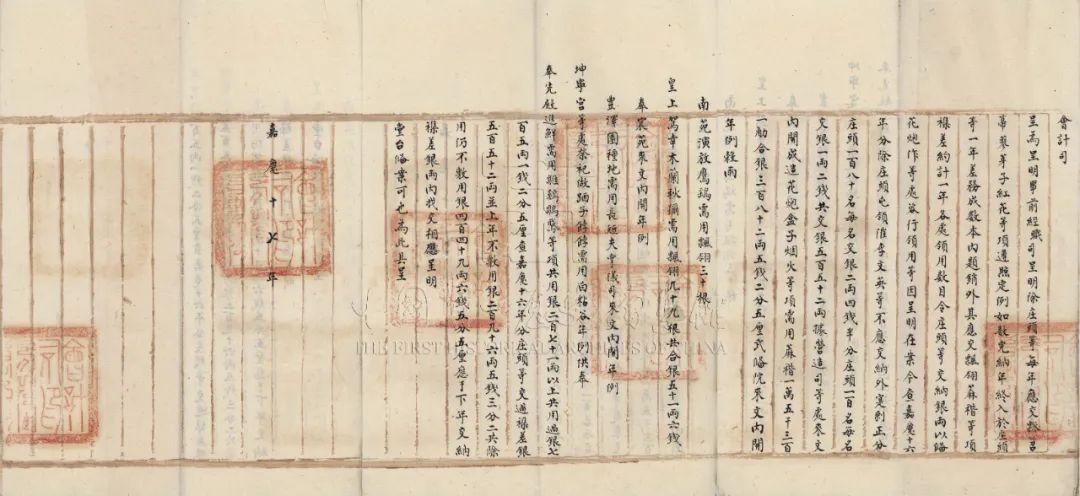 會計司
呈為呈明事前經職司呈明除庄頭等每年應交掀苕
箒芽子紅花等項遵照定例如數完納年終入於庄頭
等一年差務成數本內題銷外其應交翎蔴稭等項
襍差約計一年各處領用數目令庄頭等交納銀兩以備
花炮作等處咨行領用等因呈明在案今查嘉慶十六
年分除庄頭屯領催李文英等不應交納外寔剩正分
庄頭一百八十名每名交銀二兩四錢半分庄頭一百名每名
交銀一兩二錢共交銀五百五十二兩據營造司等處來文
內開成造花炮盒子烟火等項需用蔴稭一萬五千三百
一觔合銀三百八十二兩五錢二分五厘武備院來文內開
年例穀雨
南苑演放鷹鷂需用翎三十根
皇上駕幸木蘭秋獮需用翎九十九根共合銀五十一兩六錢
奉宸苑來文內開年例
豐澤園種地需用長短夫掌儀司來文內開年例
坤寧宮等處祭祀做跴子餑餑需用白粘谷年例供奉
奉先殿進鮮需用雛雞鵝鴨等項共用銀二百七十一兩以上共用過銀七
百五兩一錢二分五厘查嘉慶十六年分庄頭等交過襍差銀
五百五十二兩並上年不敷用銀二百九十六兩五錢三分二共除
用仍不敷用銀四百四十九兩六錢五分五厘應于下年交納
襍差銀兩內找交相應呈明
堂台俻案可也為此具呈
嘉慶十七年
THE FIRST HISTORICAL ARCHIVES OF CHINA